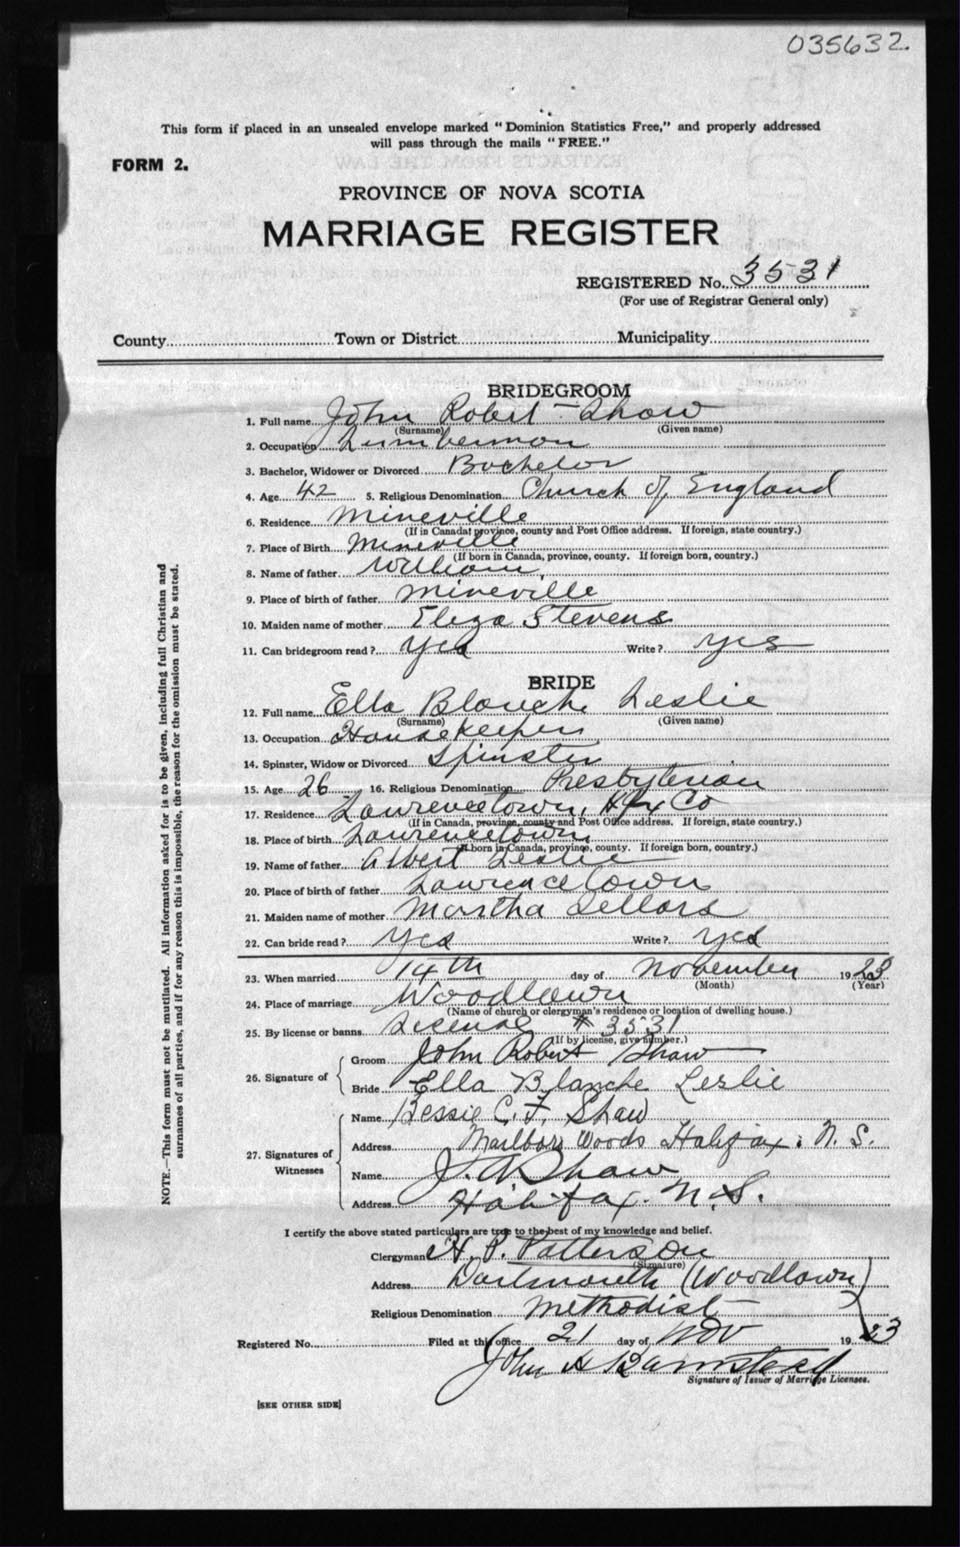 035632.
This form if placed in an unsealed envelope marked "Dominion Statistics Free," and properly addressed
will pass through the mails "FREE."
FORM 2.
PROVINCE OF NOVA SCOTIA
MARRIAGE REGISTER
REGISTERED No. 3531
(For use of Registrar General only)
County Town or District Municipality
BRIDEGROOM
1. Full name John Robert Shaw
(Surname) (Given name)
2. Occupation Lumberman
3. Bachelor, Widower or Divorced Bachelor
4. Age 42 5. Religious Denomination Church of England
6. Residence Mineville
(If in Canada, province, county and Post Office address. If foreign, state country.)
7. Place of Birth Mineville
(If born in Canada, province, county. If foreign born, country.)
8. Name of father William
9. Place of birth of father Mineville
10. Maiden name of mother Eliza Stevens
11. Can bridegroom read? yes Write? yes
BRIDE
12. Full name Ella Blanche Leslie
(Surname) (Given name)
13. Occupation Housekeeper
14. Spinster, Widow or Divorced Spinster
15. Age 26 16. Religious Denomination Presbyterian
17. Residence Lawrencetown, Hfx Co
(If in Canada, province, county and Post Office address. If foreign, state country.)
18. Place of birth Lawrencetown
(If born in Canada, province, county. If foreign born, country.)
19. Name of father Albert Leslie
20. Place of birth of father Lawrencetown
21. Maiden name of mother Martha Sellars
22. Can bride read? yes Write? yes
23. When married 14th day of November 1923
(Month) (Year)
24. Place of marriage Woodlawn
(Name of church or clergyman's residence or location of dwelling house.)
25. By license or banns License # 3531
(If by license, give number.)
26. Signature of Groom John Robert Shaw
Bride Ella Blanche Leslie
27. Signatures of Witnesses Name Bessie C. F. Shaw
Address Woods Halifax, N. S.
Name Shaw
Address Halifax. N. S.
I certify the above stated particulars are true to the best of my knowledge and belief.
Clergyman H. P. Patterson
(Signature)
Address Dartmouth (Woodlawn)
Religious Denomination Methodist
Registered No. Filed at this office 21 day of Nov 1923
John H Barnstead
Signature of Issuer of Marriage Licenses.
[SEE OTHER SIDE]
NOTE.—This form must not be mutilated. All information asked for is to be given, including full Christian and
surnames of all parties, and if for any reason this is impossible, the reason for the omission must be stated.